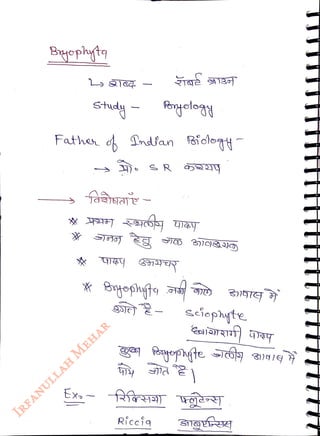 Bryophyta
↳ शब्द - रॉबर्ट ब्राउन
Study - Bryology
Father of Indian Biology -
→ प्रो. S R कश्यप
→ विशेषताएँ -
* प्रथम स्थलीय पादप
* जनन हेतु जल आवश्यक
* पादप उभयचर
* Bryophyta नमी वाले आवास में
उगते है - Sciophyte
छायारागी पादप
कुछ Bryophyte जलीय आवास में
पाये जाते है।
Ex.- रिक्सिया फ्लूटेन्स
Riccia
IRFANULLAH MEHAR